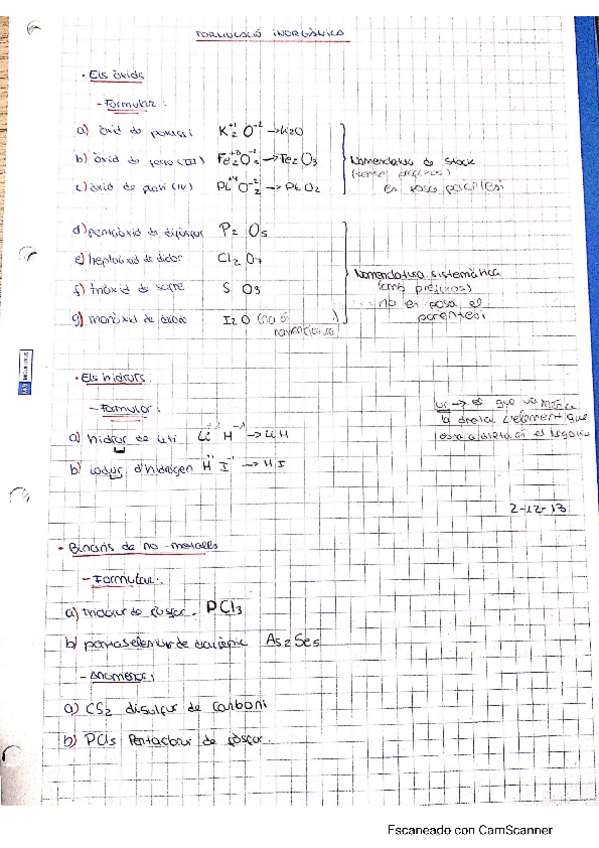 FORMULACIÓ INORGÀNICA
· Els òxids
- Formular:
a) òxid de potassi K₂⁺¹ O⁻² → K₂O
b) òxid de ferro (III) Fe₂⁺³ O₃⁻² → Fe₂O₃
c) òxid de platí (IV) Pt⁺⁴ O₂⁻² → PtO₂
Nomenclatura de Stock
(sense prefixos)
es posa parèntesi
d) pentaòxid de difòsfor P₂ O₅
e) heptaòxid de diclor Cl₂ O₇
f) triòxid de sofre S O₃
g) monòxid de diiode I₂O (no hi
Nomenclatura sistemàtica
(amb prefixos)
no es posa el
parèntesi
· Els hidrurs
- Formular:
a) hidrur de liti Li H⁻¹ → LiH
b) iodur d'hidrogen H I⁻¹ → HI
ur → és que va
la dreta. L'element que
està a dreta és el negatiu
2-12-13
· Binaris de no-metalls
- Formular:
a) triclorur de fòsfor. PCl₃
b) pentaselenur de diarsènic As₂Se₅
- Anomena:
a) CS₂ disulfur de carboni
b) PCl₅ Pentaclorur de fòsfor.
Escaneado con CamScanner